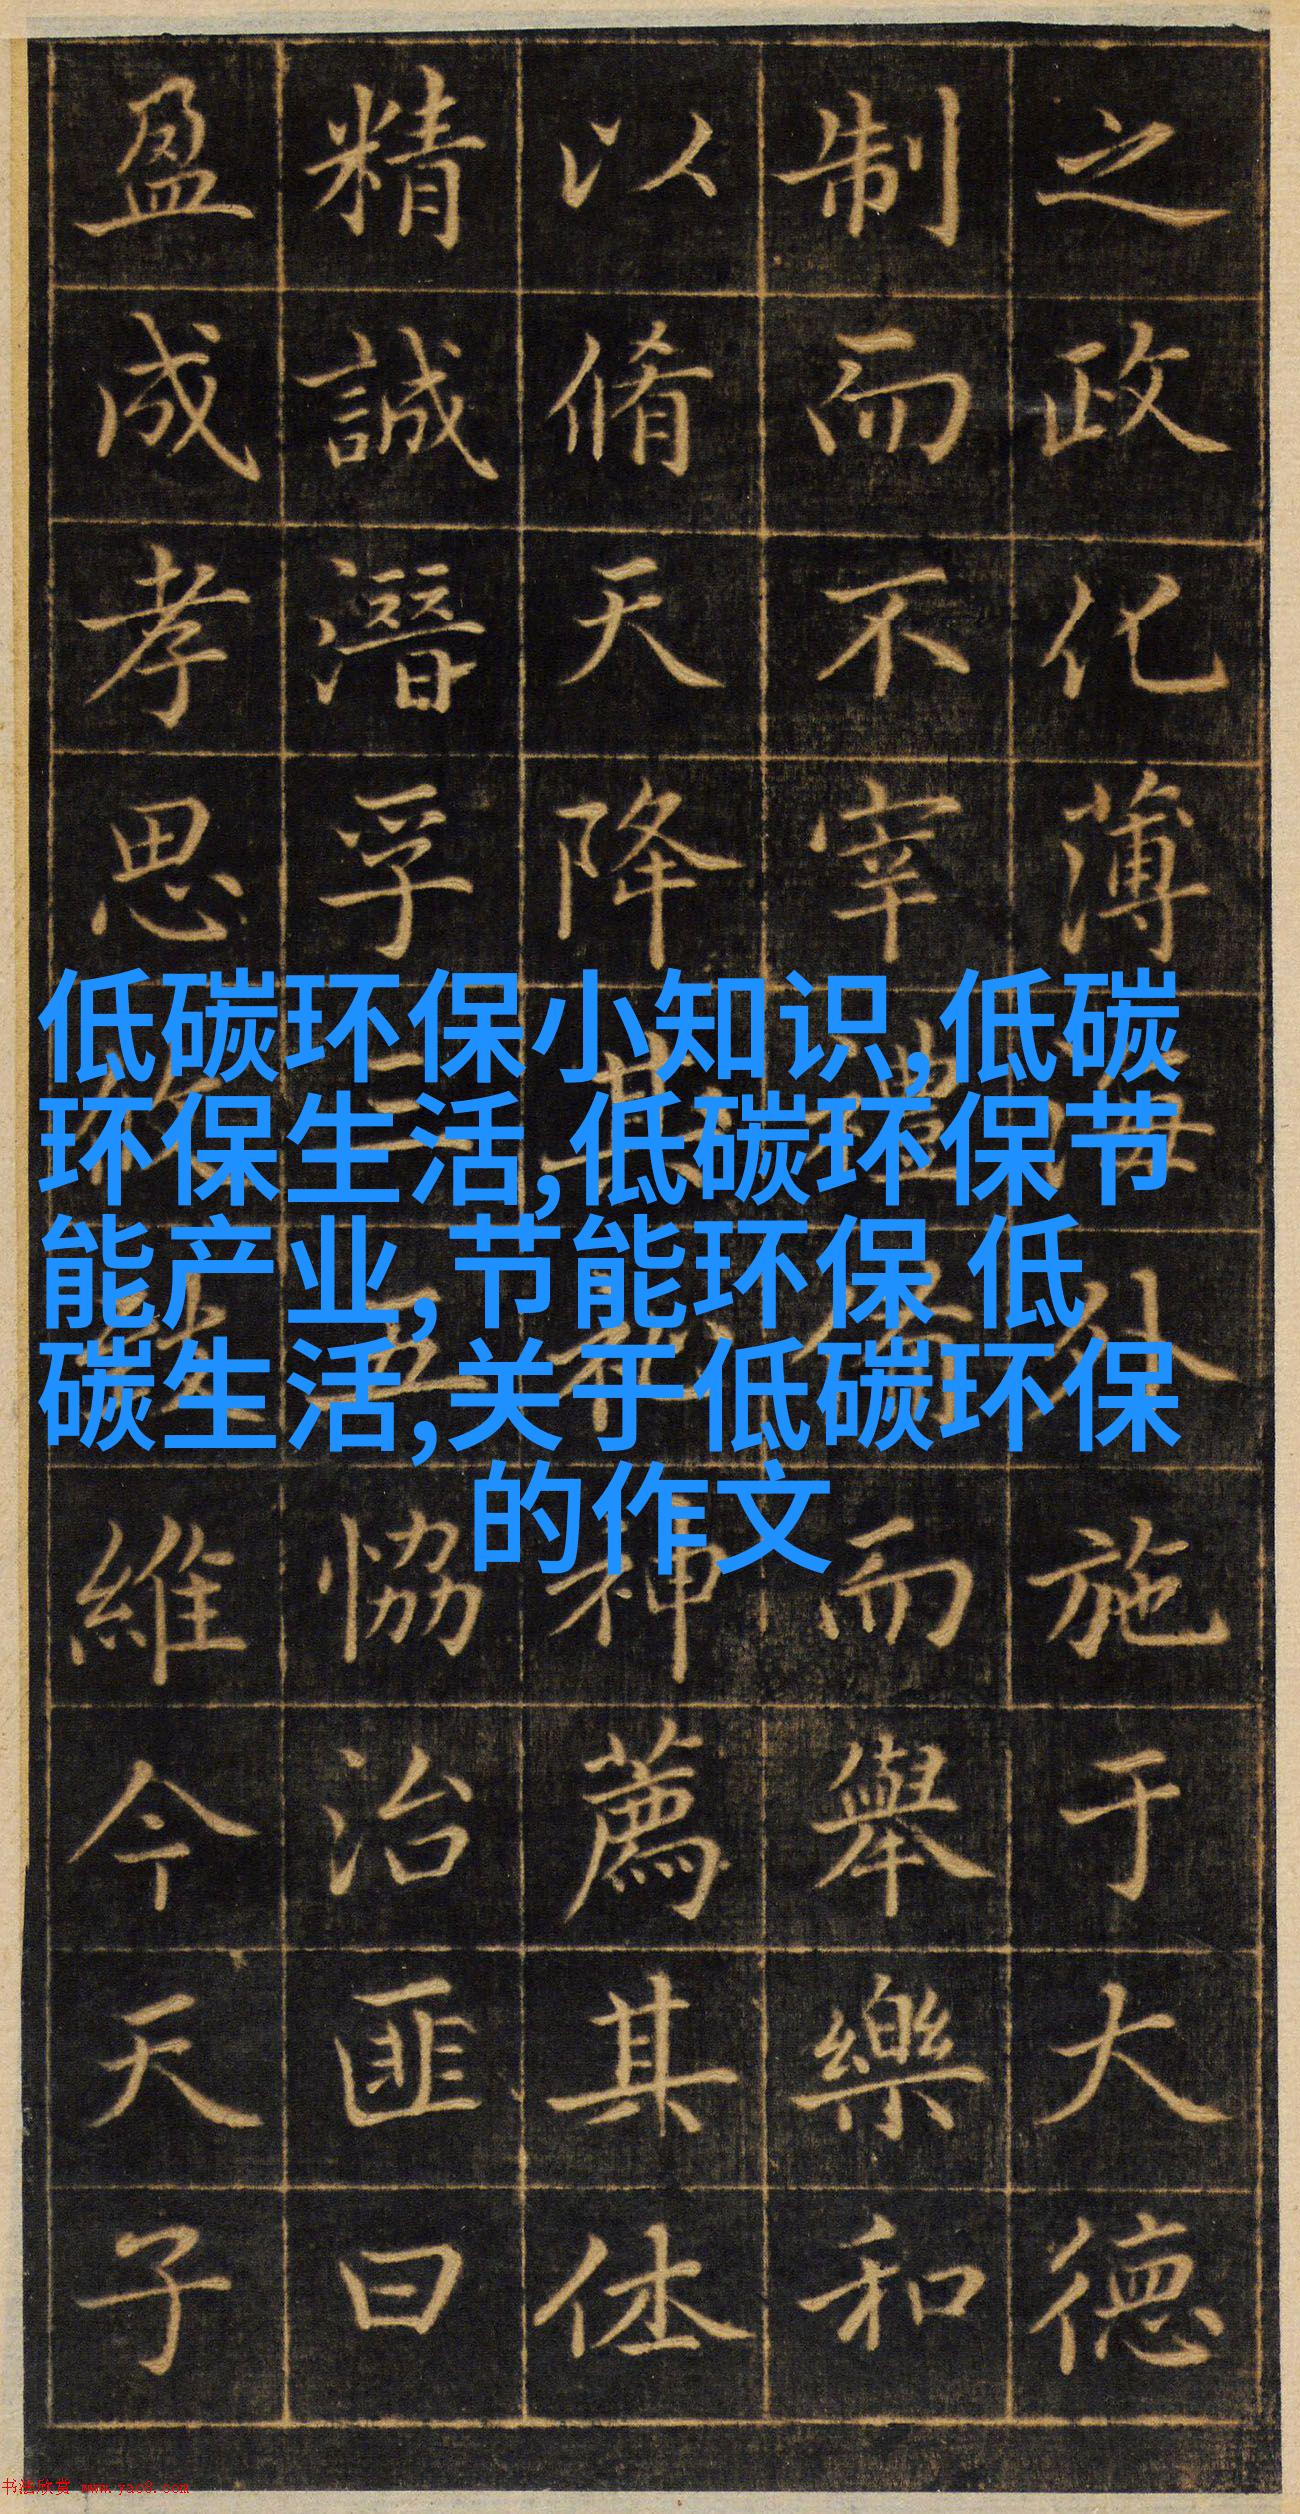 之政化薄海外施于大德
制而不宰體而舉樂和
以脩天降其神薦其休
精誠潛孚三五恊治匪曰
盈成孝思維今天子
低碳环保小知识,低碳
环保生活,低碳环保节
能产业,节能环保 低
碳生活,关于低碳环保
的作文
书法欣赏 www.yac8.com